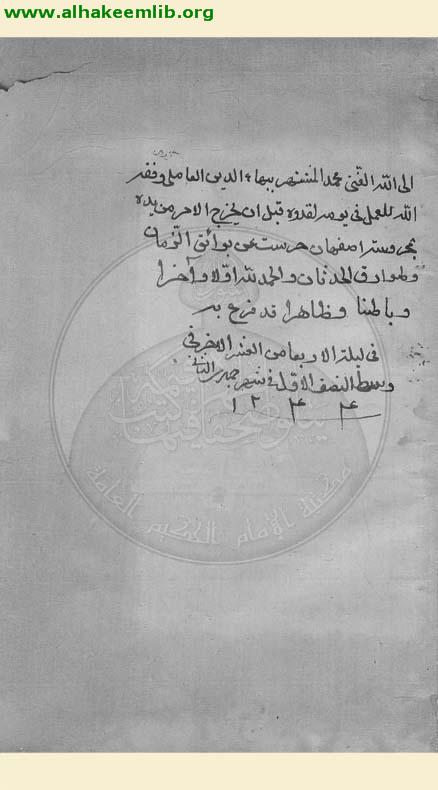 www.alhakeemlib.org
الى الله الغني محمد المشتهر ببهاء الدين العاملي وفقه
الله للعمل في يومه لغده قبل ان يخرج الامر من يده
بمحروسة اصفهان حرست عن بوائق الزمان
وطوارق الحدثان والحمد لله اولا وآخرا
وباطنا وظاهرا قد فرغ
في ليلة الاربعا من العشر
وسط النصف الاول في شهر
١٢٤٤
مكتبة الإمام الحكيم العامة